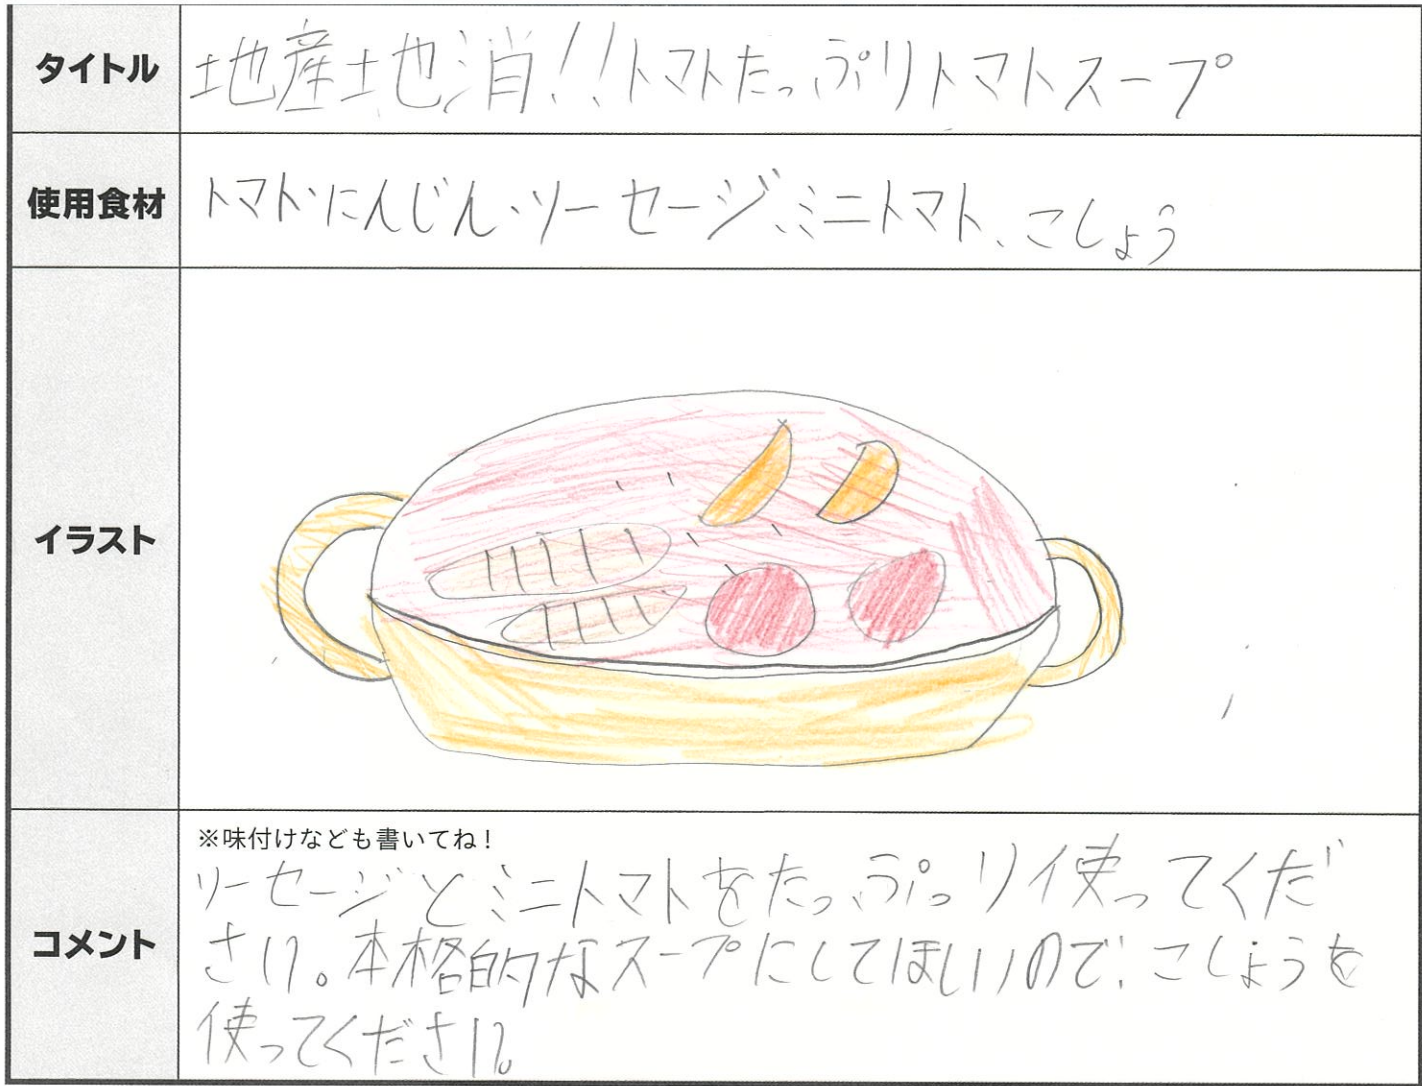 タイトル
地産地消!!トマトたっぷりトマトスープ
使用食材
トマト、にんじん、ソーセージ、ミニトマト、こしょう
イラスト
コメント
※味付けなども書いてね!
ソーセージとミニトマトをたっぷっり使ってくだ
さい。本格的なスープにしてほしいので、こしょうを
使ってください。